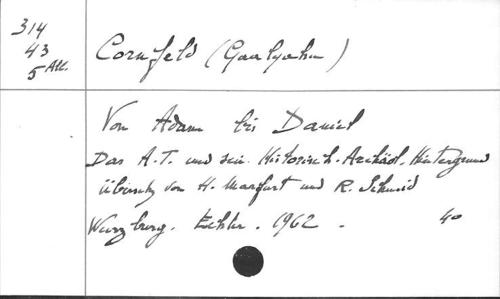 314
43
5 Alt.
Cornfeld (Gaalyahu)
Von Adam bis Daniel
Das A.T. und sein Historisch-Archäol. Hintergrund
Übersetz von H. Margurt und R. Schmid
Wurzburg. Echter. 1962. 40